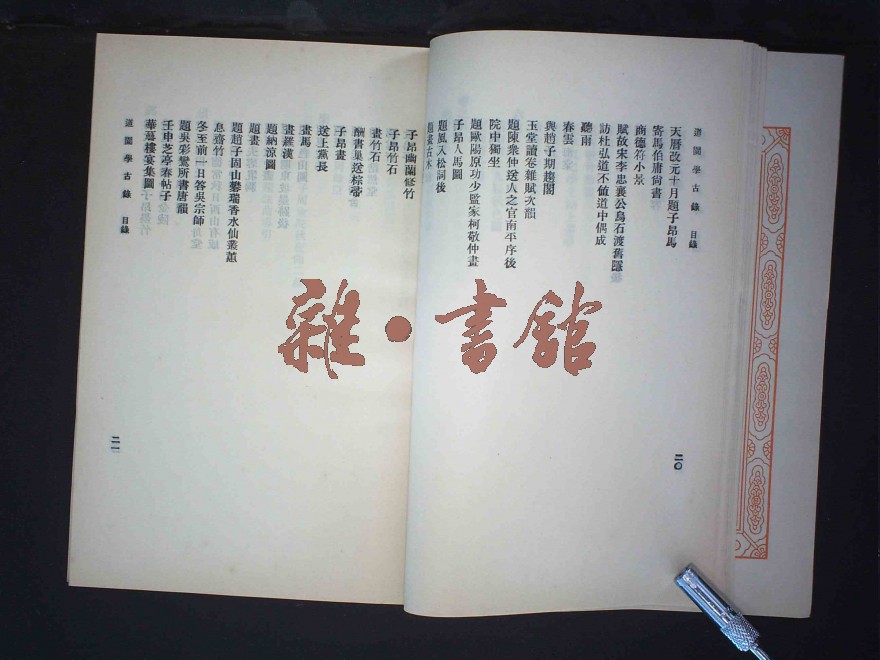 道園學古錄 目錄
天曆改元十月題子昂馬
寄馬伯庸尚書
商德符小景
賦故宋李忠襄公烏石渡舊隱
訪杜弘道不値道中偶成
聽雨
春雲
與趙子期趨閣
玉堂讀卷雜賦次韻
題陳衆仲送人之官南平序後
院中獨坐
題歐陽原功少監家柯敬仲畫
子昂人馬圖
題風入松詞後
題畫古木
二〇
子昂幽蘭修竹
子昂竹石
畫竹石
酬書巢送棕帚
子昂畫
送上黨長
畫馬
畫羅漢
題納涼圖
題畫
題趙子固山礬瑞香水仙叢蕙
息齋竹
冬至前一日答吳宗師
題吳彩鸞所書唐韻
壬申芝亭春帖子
華蕚樓宴集圖
道園學古錄 目錄
二一
雜·書館